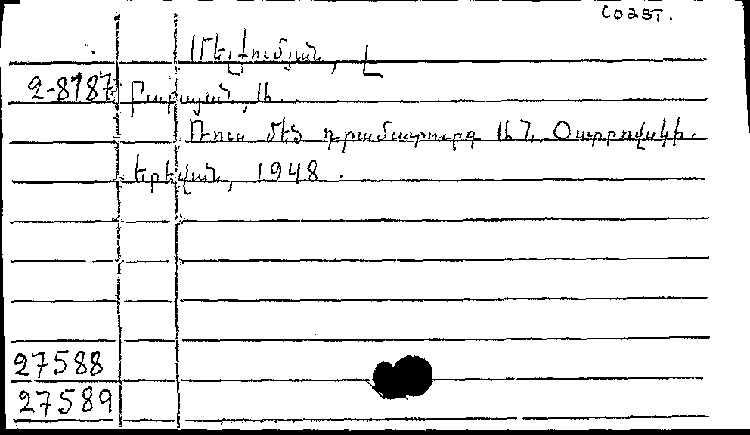 СОЗБТ.
Մելքումյան, Լ
2-8787 Բաբայան, Ա.
Ռուս մեծ դրամատուրգ Ա. Ն. Օստրովսկի.
Երևան, 1948.
27588
27589